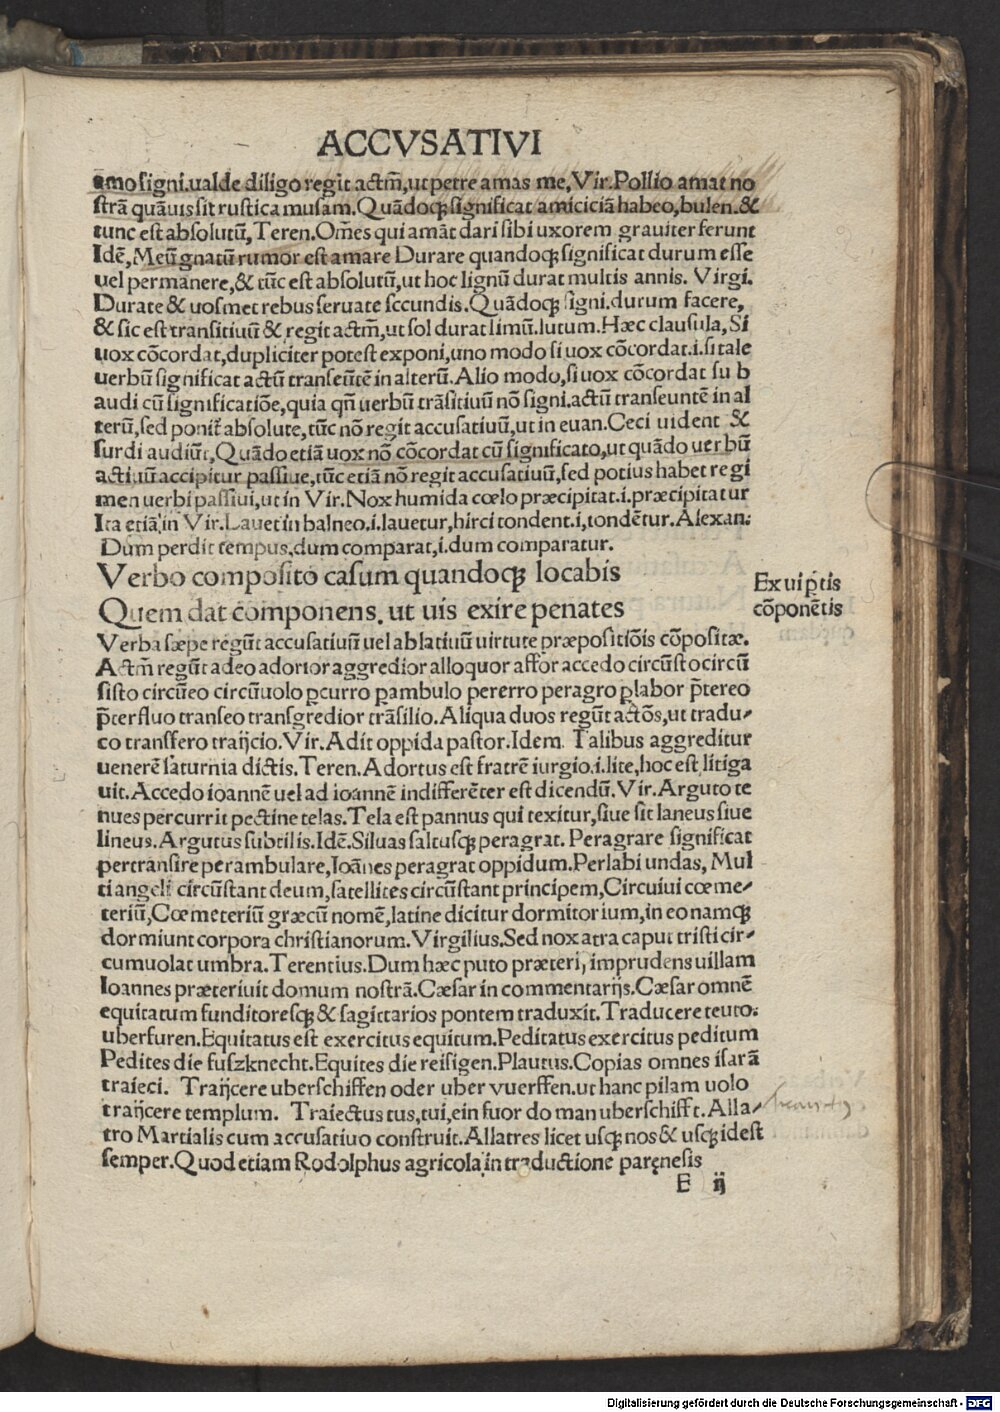 ACCVSATIVI
amo signi.ualde diligo regit actm̄,ut petre amas me,Vir.Pollio amat no
strā quāuis sit rustica musam.Quādoqꝫ significat amiciciā habeo,bulen.&
tunc est absolutū,Teren.Om̄es qui amāt dari sibi uxorem grauiter ferunt
Idē,Meū gnatū rumor est amare Durare quandoqꝫ significat durum esse
uel permanere,& tūc est absolutū,ut hoc lignū durat multis annis. Virgi.
Durate & uosmet rebus seruate sccundis.Quādoqꝫ signi.durum facere,
& sic est transitiuū & regit actm̄,ut sol durat limū.lutum.Hæc clausula,Si
uox cōcordat,dupliciter potest exponi,uno modo si uox cōcordat.i.si tale
uerbū significat actū transeūtē in alterū.Alio modo,si uox cōcordat su b
audi cū significatiōe,quia qn̄ uerbū trāsitiuū nō signi.actū transeuntē in al
terū,sed ponit̄ absolute,tūc nō regit accusatiuū,ut in euan.Ceci uident &
surdi audiūt,Quādo etiā uox nō cōcordat cū significato,ut quādo uerbū
actiuū accipitur passiue,tūc etiā nō regit accusatiuū,sed potius habet regi
men uerbi passiui,ut in Vir.Nox humida cœlo præcipitat.i.præcipitatur
Ita etiā in Vir.Lauet in balneo.i.lauetur,hirci tondent.i,tondētur.Alexan.
Dum perdit tempus,dum comparat,i.dum comparatur.
Verbo composito casum quandoqꝫ locabis
Quem dat componens, ut uis exire penates
Ex ui p̄tis
cōponētis
Verba sæpe regūt accusatiuū uel ablatiuū uirtute præpositiōis cōpositæ.
Actm̄ regūt adeo adorior aggredior alloquor affor accedo circūsto circū
sisto circūeo circūuolo ꝑcurro ꝑambulo pererro peragro ꝑlabor p̄tereo
p̄terfluo transeo transgredior trāsilio.Aliqua duos regūt actōs,ut tradu⸗
co transfero traijcio.Vir.Adit oppida pastor.Idem Talibus aggreditur
uenerē saturnia dictis.Teren.Adortus est fratrē iurgio.i.lite,hoc est litiga
uit.Accedo ioannē uel ad ioannē indifferēter est dicendū.Vir.Arguto te
nues percurrit pectine telas.Tela est pannus qui texitur,siue sit laneus siue
lineus.Argutus subtilis.Idē.Siluas saltusqꝫ peragrat. Peragrare significat
pertransire perambulare,Ioānes peragrat oppidum.Perlabi undas, Mul
ti angeli circūstant deum,satellites circūstant principem,Circuiui cœme⸗
teriū,Cœmeteriū græcū nomē,latine dicitur dormitorium,in eo namqꝫ
dormiunt corpora christianorum.Virgilius.Sed nox atra caput tristi cir⸗
cumuolat umbra.Terentius.Dum hæc puto præteri, imprudens uillam
Ioannes præteriuit domum nostrā.Cæsar in commentarijs.Cæsar omnē
equitatum funditoresqꝫ & sagittarios pontem traduxit.Traducere teuto:
uberfuren.Equitatus est exercitus equitum.Peditatus exercitus peditum
Pedites die fuszknecht.Equites die reisigen.Plautus.Copias omnes isarā
traieci. Traijcere uberschiffen oder uber vuerffen.ut hanc pilam uolo
traijcere templum. Traiectus tus,tui,ein fuor do man uberschifft.Alla⸗
tro Martialis cum accusatiuo construit.Allatres licet usqꝫ nos & usqꝫ idest
semper.Quod etiam Rodolphus agricola in traductione paręnesis
E ij
Digitalisierung gefördert durch die Deutsche Forschungsgemeinschaft - DFG